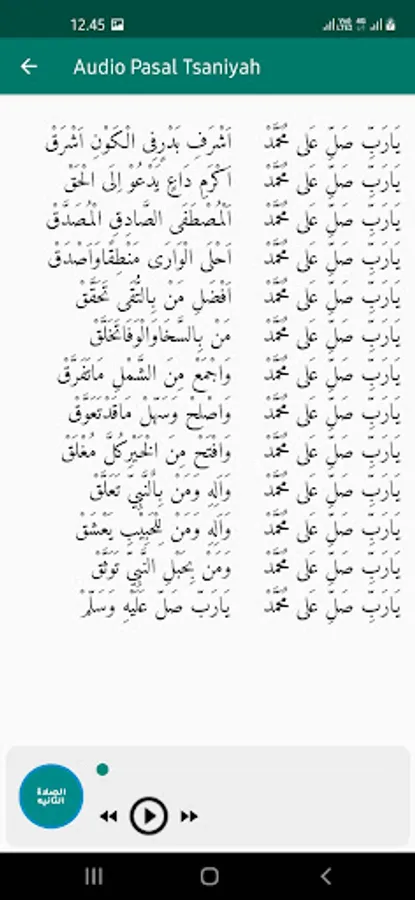 12.45
Audio Pasal Tsaniyah
يَارَبِّ صَلِّ عَلَى مُحَمَّدْ اَشْرَفِ بَدْرٍفِى الْكَوْنِ اَشْرَقْ
يَارَبِّ صَلِّ عَلَى مُحَمَّدْ اَكْرَمِ دَاعٍ يَدْعُوْ اِلَى الْحَقْ
يَارَبِّ صَلِّ عَلَى مُحَمَّدْ اَلْمُصْطَفَى الصَّادِقِ الْمُصَدَّقْ
يَارَبِّ صَلِّ عَلَى مُحَمَّدْ اَحْلَى الْوَارَى مَنْطِقًاوَاَصْدَقْ
يَارَبِّ صَلِّ عَلَى مُحَمَّدْ اَفْضَلِ مَنْ بِالتُّقَى تَحَقَّقْ
يَارَبِّ صَلِّ عَلَى مُحَمَّدْ مَنْ بِالسَّخَاوَالْوَفَاتَخَلَّقْ
يَارَبِّ صَلِّ عَلَى مُحَمَّدْ وَاجْمَعْ مِنَ الشَّمْلِ مَاتَفَرَّقْ
يَارَبِّ صَلِّ عَلَى مُحَمَّدْ وَاصْلِحْ وَسَهِّلْ مَاقَدْتَعَوَّقْ
يَارَبِّ صَلِّ عَلَى مُحَمَّدْ وَافْتَحْ مِنَ الْخَيْرِكُلَّ مُغْلَقْ
يَارَبِّ صَلِّ عَلَى مُحَمَّدْ وَآلِهِ وَمَنْ بِالنَّبِيِّ تَعَلَّقْ
يَارَبِّ صَلِّ عَلَى مُحَمَّدْ وَآلِهِ وَمَنْ لِلْحَبِيْبِ يَعْشَقْ
يَارَبِّ صَلِّ عَلَى مُحَمَّدْ وَمَنْ بِحَبْلِ النَّبِيِّ تَوَثَّقْ
يَارَبِّ صَلِّ عَلَى مُحَمَّدْ يَارَبِّ صَلِّ عَلَيْهِ وَسَلِّمْ
الصلاة
الثانيه